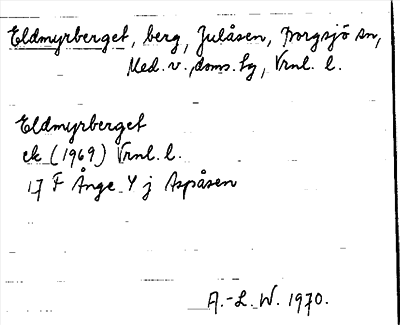 Eldmyrberget, berg, Julåsen, Borgsjö sn,
Med. v. doms. hg, Vrnl. l.
Eldmyrberget
ek (1969) Vrnl. l.
17 F Ånge Y j Aspåsen
A.-L. W. 1970.